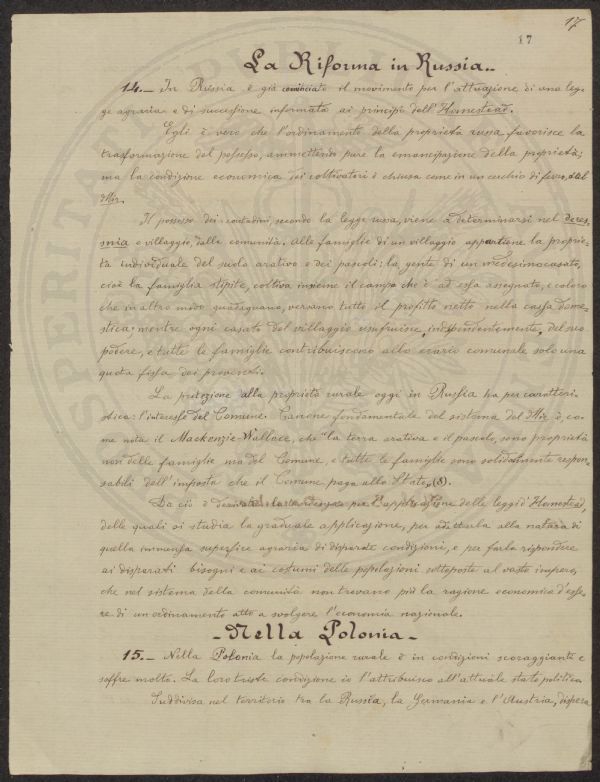 17
17
La Riforma in Russia..
14.— In Russia è già cominciato il movimento per l'attuazione di una leg-
ge agraria e di successione informata ai principi dell'Homestead.
Egli è vero che l'ordinamento della proprietà russa favorisce la
trasformazione del possesso, ammettendo pure la emancipazione della proprietà;
ma la condizione economica dei coltivatori è chiusa come in un cerchio di ferro, dal
Mir.
Il possesso dei contadini, secondo la legge russa, viene a determinarsi nel deres-
snia o villaggio, dalle comunità. Alle famiglie di un villaggio appartiene la proprie-
tà individuale del suolo arativo e dei pascoli: la gente di un medesimo casato,
cioè la famiglia stipite, coltiva insieme il campo che è ad essa assegnato, e coloro
che in altro modo guadagnano, versano tutto il profitto netto nella cassa dome-
stica: mentre ogni casato del villaggio usufruisce, indipendentemente, del suo
podere, e tutte le famiglie contribuiscono allo erario comunale solo una
quota fissa dei proventi.
La protezione alla proprietà rurale oggi in Russia ha per caratteri-
stica: l'interesse del Comune. Canone fondamentale del sistema del Mir è, co-
me nota il Mackenzie-Wallace, che "la terra arativa e il pascolo, sono proprietà
non delle famiglie ma del Comune, e tutte le famiglie sono solidalmente respon-
sabili dell'imposta che il Comune paga allo Stato„ (8).
Da ciò è derivata la tendenza per l'applicazione delle leggi d'Homestead,
delle quali si studia la graduale applicazione, per adattarla alla natura di
quella immensa superfice agraria di disparate condizioni, e per farla rispondere
ai disparati bisogni e ai costumi delle popolazioni sottoposte al vasto impero,
che nel sistema della comunità non trovano più la ragione economica d'esse-
re di un ordinamento atto a svolgere l'economia nazionale.
- Nella Polonia -
15.— Nella Polonia la popolazione rurale è in condizioni scoraggianti e
soffre molto. La loro triste condizione io l'attribuisco all'attuale stato politico.
Suddivisa nel territorio tra la Russia, la Germania e l'Austria, dispersa